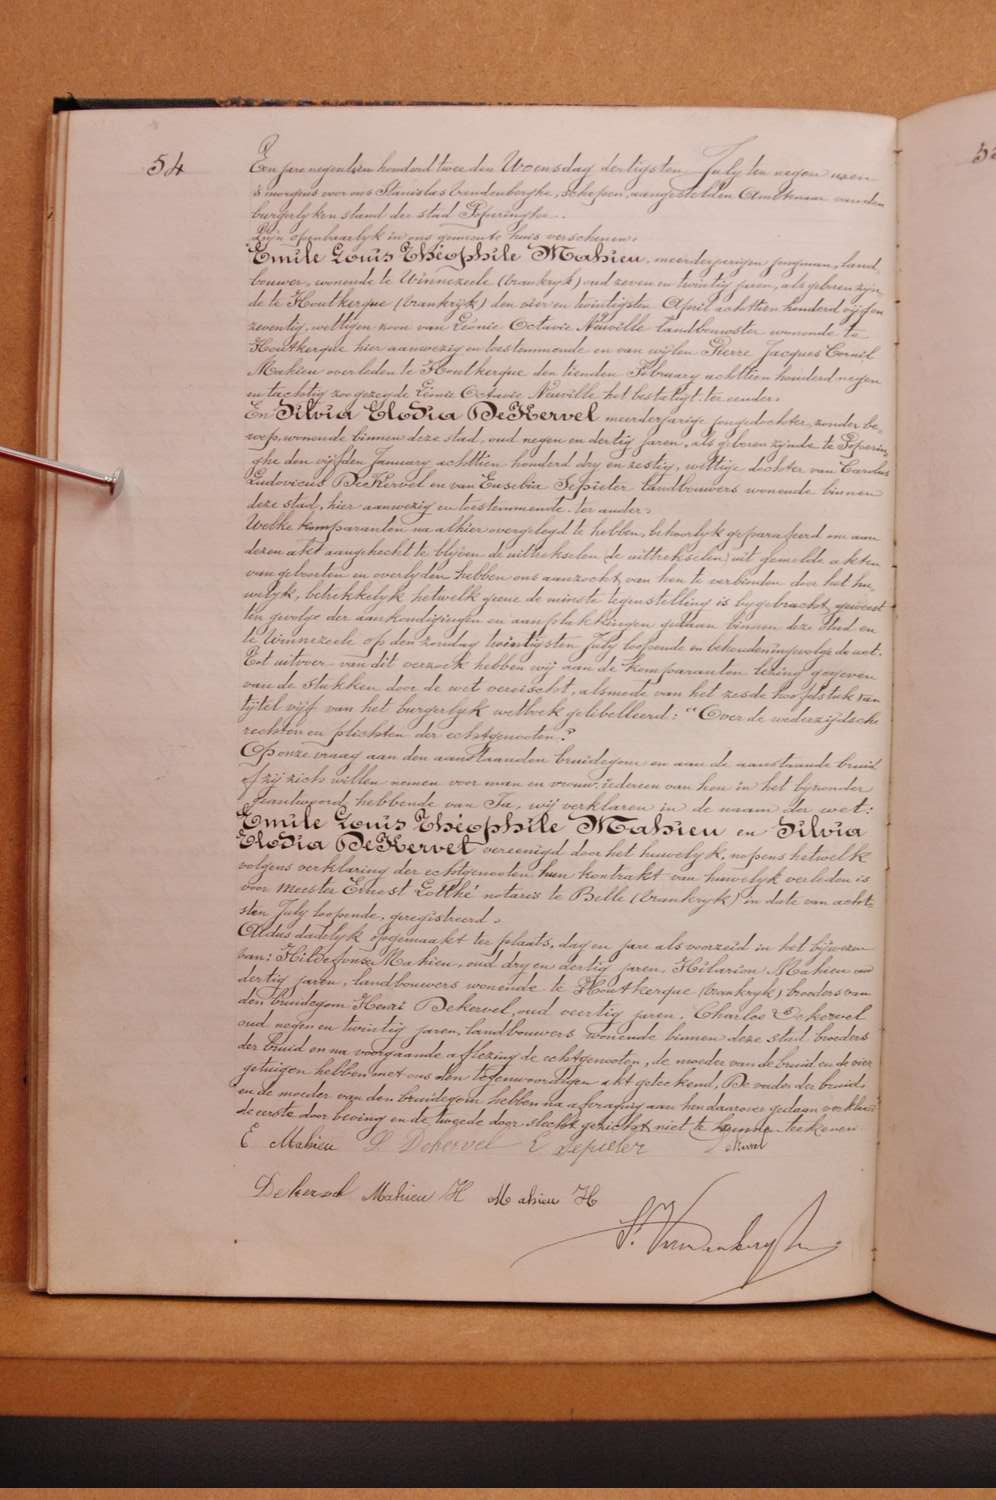 54
Een jare negentien honderd twee den Woensdag dertigsten July ten negen uren
's morgens voor ons Stanislas Vandenberghe, Schepen, aangestelden Ambtenaar van den
burgerlyken stand der stad Poperinghe.
Zijn openbaarlyk in ons gemeente huis verschenen:
Emile Louis Théophile Mahieu, meerderjarigen jongman, land,
bouwer, wonende te Winnezeele (Frankryk) oud zeven en twintig jaren, als geboren zijn
de te Houtkerque (Frankrijk) den vier en twintigsten April achttien honderd vijf en
zeventig, wettigen zoon van Léonie Octavie Neuville landbouwster wonende te
Houtkerque hier aanwezig en toestemmende en van wijlen Pierre Jacques Cornil
Mahieu overleden te Houtkerque den tienden February achttien honderd negen
en tachtig zoo gezegde Léonie Octavie Neuville het bestatigt. ter eender.
En Silvia Elodia DeKervel meerderjarige jongedochter, zonder be,
roep, wonende binnen deze stad, oud negen en dertig jaren, als geboren zynde te Poperin,
ghe den vijfden January achttien honderd dry en zestig, wettige dochter van Carolus
Ludovicus DeKervel en van Eusebia Sepieter landbouwers wonende binnen
deze stad, hier aanwezig en toestemmende. ter ander.
Welke komparanten na alhier overgelegd te hebben, behoorlyk geparafeerd om aan
dezen akt aangehecht te blyven de uittrekselen (de uittrekselen) uit gemelde akten
van geboorten en overlyden hebben ons aanzocht van hen te verbinden door het hu,
welyk, betrekkelyk hetwelk geene de minste tegenstelling is bygebracht geweest
ten gevolge der aankondigingen en aanplakkingen gedaan binnen deze stad en
te Winnezeele op den zondag twintigsten July loopende en behouden ingevolge de wet.
Tot uitvoer van dit verzoek hebben wij aan de komparanten lezing gegeven
van de stukken door de wet vereischt, alsmede van het zesde hoofdstuk van
tytel vijf van het burgerlyk wetboek gelibelleerd: "Over de wederzijdsche
rechten en plichten der echtgenooten."
Op onze vraag aan den aanstaanden bruidegom en aan de aanstaande bruid
of zij zich willen nemen voor man en vrouw, iedereen van hen in het byzonder
geantwoord hebbende van Ja, wij verklaren in de naam der wet:
Emile Louis Théophile Mahieu en Silvia
Elodia DeKervel vereenigd door het huwelyk, nopens hetwelk
volgens verklaring der echtgenooten hun kontrakt van huwelyk verleden is
voor meester Ernest Lotthé notaris te Belle (Frankryk) in date van acht-
sten July loopende, geregistreerd.
Aldus dadelyk opgemaakt ter plaats, dag en jare als voorzeid in het bijwezen
van: Hildefonse Mahieu, oud dry en dertig jaren, Hilarion Mahieu oud
dertig jaren, landbouwers wonende te Houtkerque (Frankryk) broeders van
den bruidegom Henri Dekervel, oud veertig jaren, Charles Dekervel
oud negen en twintig jaren, landbouwers wonende binnen deze stad broeders
der bruid en na voorgaande aflezing de echtgenooten, de moeder van de bruid en de vier
getuigen hebben met ons den tegenwoordigen akt geteekend, De vader der bruid
en de moeder van den bruidegom hebben na afvraging aan hen daarover gedaan verklaard
de eerste door beving en de tweede door slecht gezicht niet te kunnen teekenen
E Mahieu S. Dekervel E Sepieter
Dekervel Mahieu H Mahieu H
S. Vandenberghe